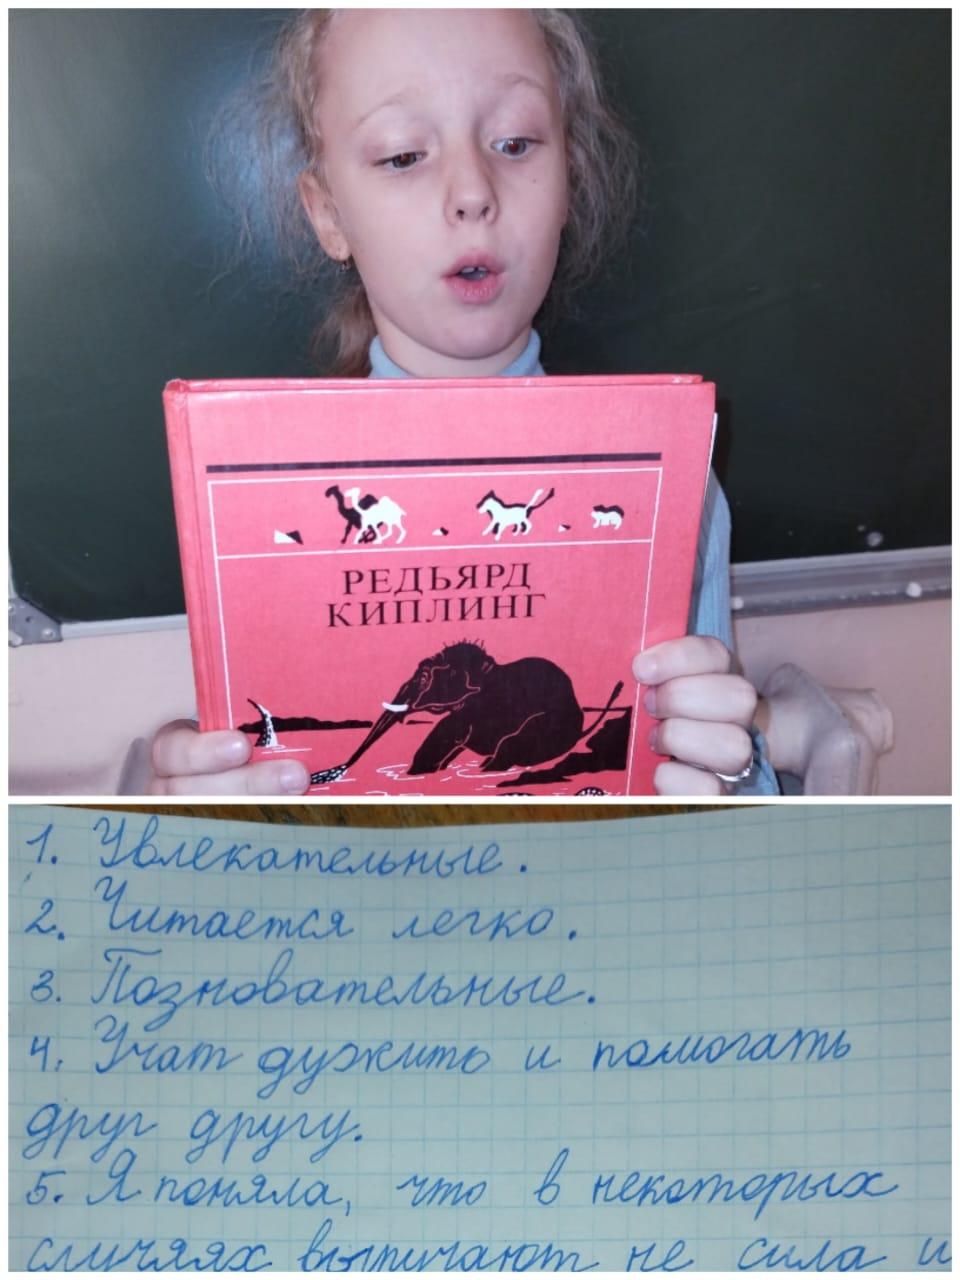 РЕДЬЯРД
КИПЛИНГ
1. Увлекательные.
2. Читается легко.
3. Позновательные.
4. Учат дужить и помогать
друг другу.
5. Я поняла, что в некоторых
случяях выручают не сила и